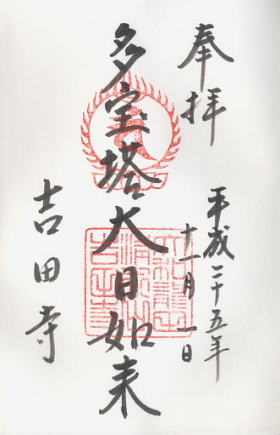 奉拝
平成二十五年
十一月一日
多宝塔大日如来
吉田寺